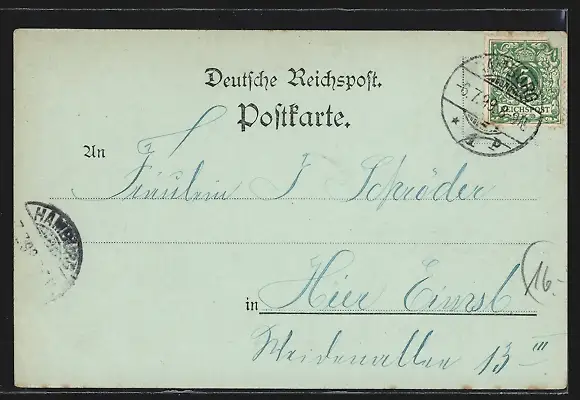 Deutsche Reichspost.
Postkarte.
An
Fräulein F Schröder
in Hier Eimsb
Weidenallee 13 III
HAMBURG
REICHSPOST
HAMBURG
16-